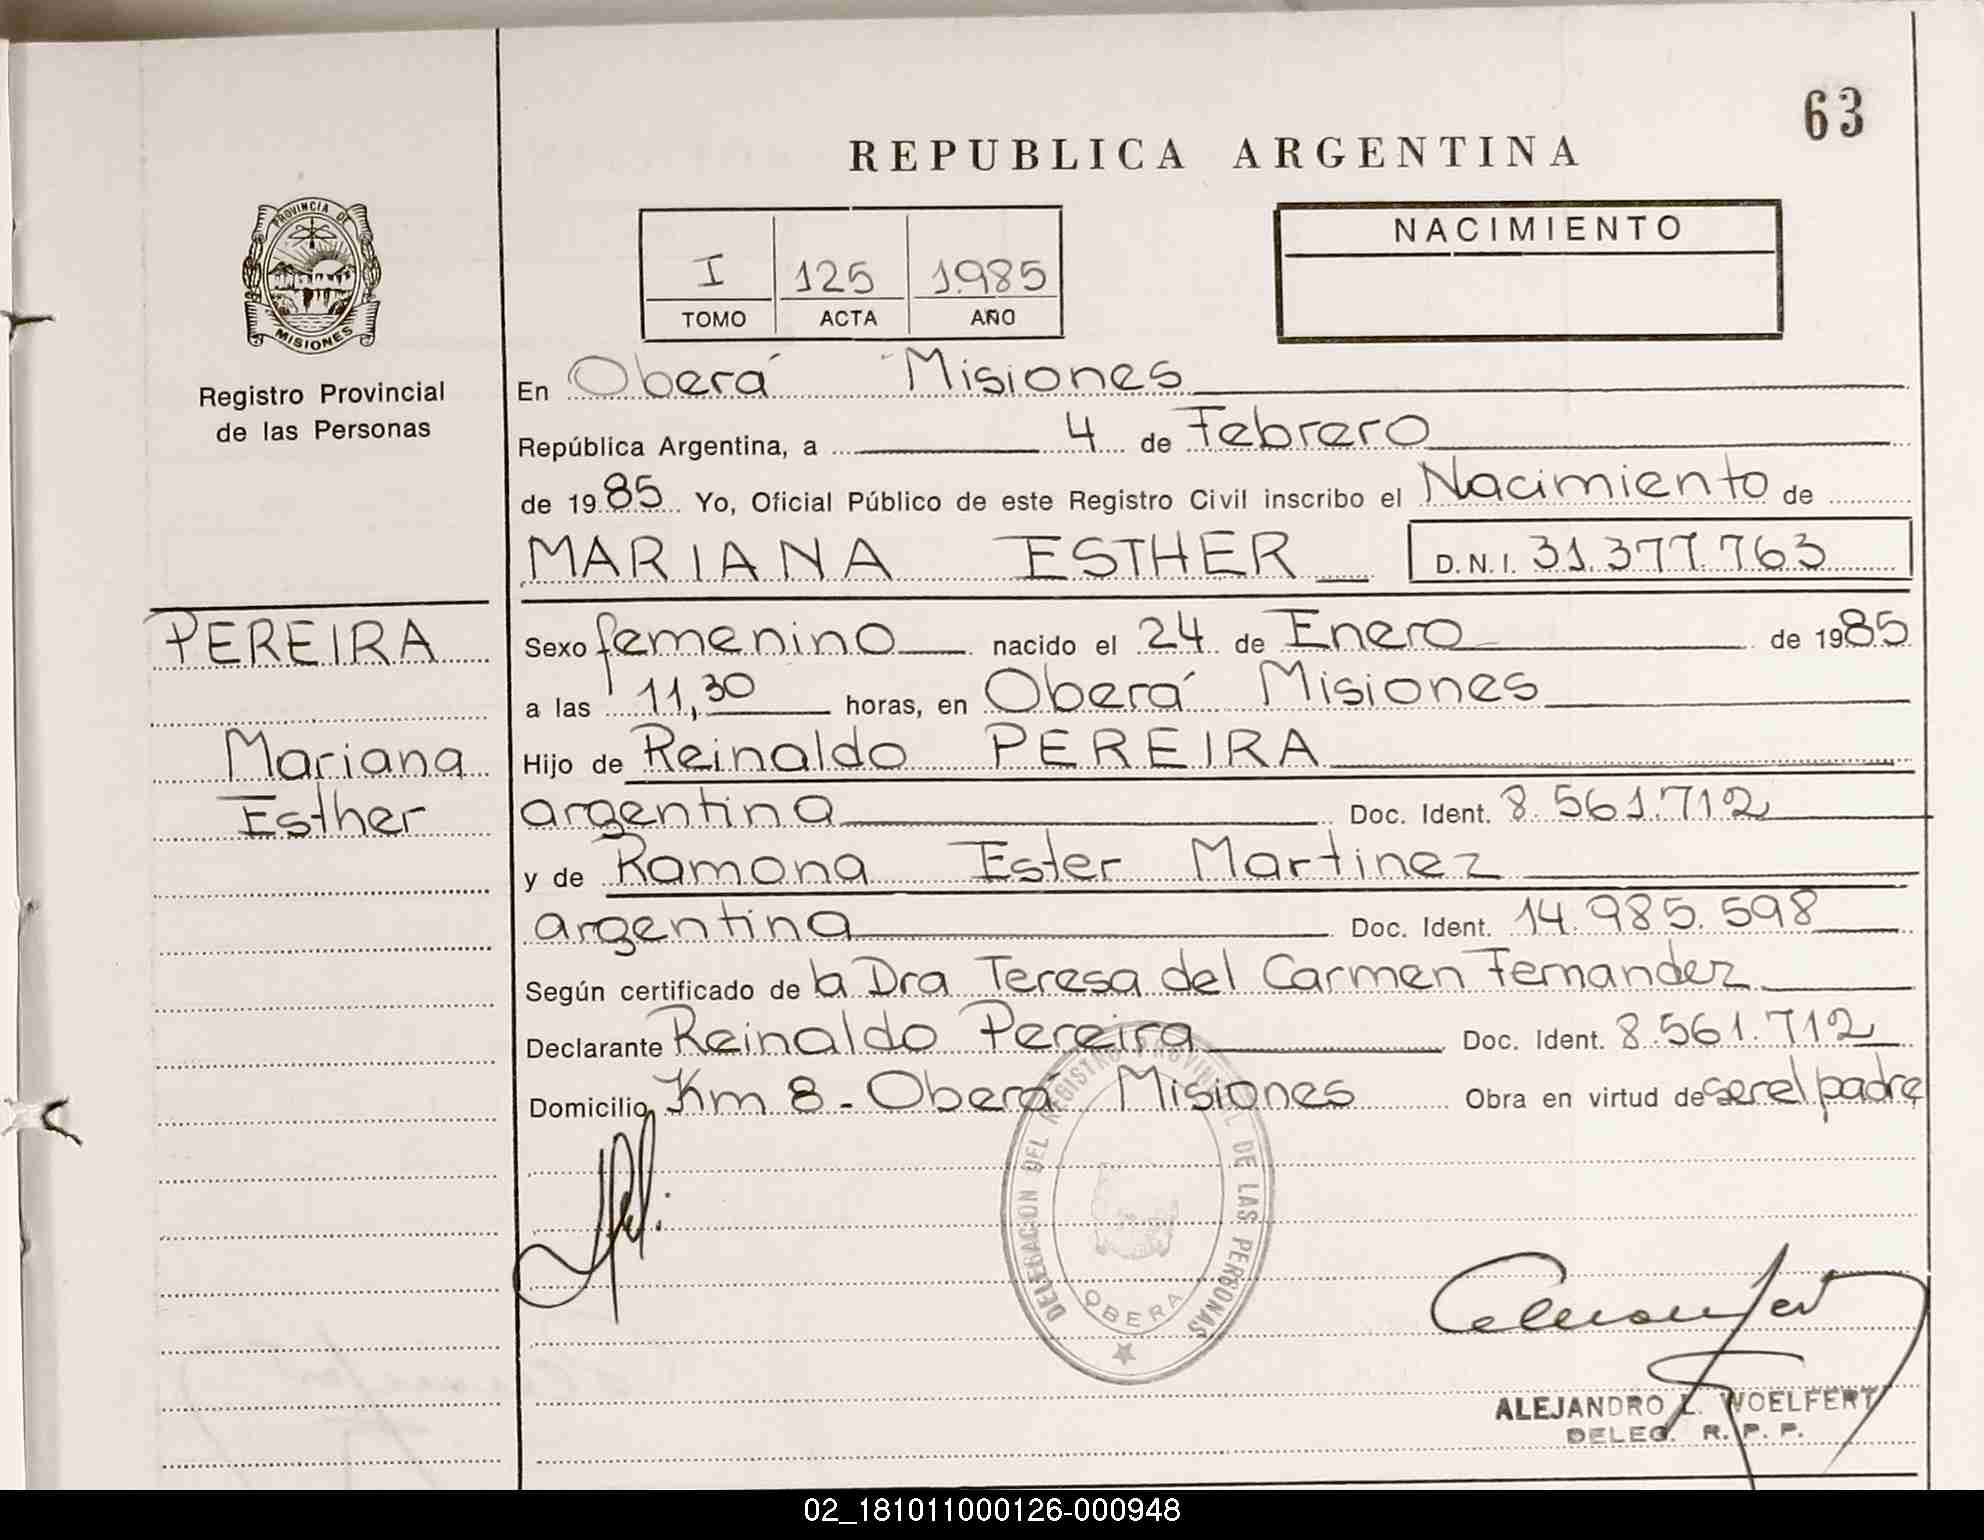 63
REPUBLICA ARGENTINA
PROVINCIA DE
MISIONES
Registro Provincial
de las Personas
I 125 1.985
TOMO ACTA AÑO
NACIMIENTO
En Oberá Misiones
República Argentina, a 4 de Febrero
de 1985 Yo, Oficial Público de este Registro Civil inscribo el Nacimiento de
MARIANA ESTHER D.N.I. 31.377.763
PEREIRA
Mariana
Esther
Sexo femenino nacido el 24 de Enero de 1985
a las 11,30 horas, en Oberá Misiones
Hijo de Reinaldo PEREIRA
argentina Doc. Ident. 8.561.712
y de Ramona Ester Martinez
argentina Doc. Ident. 14.985.598
Según certificado de la Dra Teresa del Carmen Fernandez
Declarante Reinaldo Pereira Doc. Ident. 8.561.712
Domicilio Km 8 - Oberá Misiones Obra en virtud de ser el padre
DELEGACION DEL REGISTRO PROVINCIAL DE LAS PERSONAS
OBERA
ALEJANDRO L. WOELFERT
DELEG. R. P. P.
02_181011000126-000948